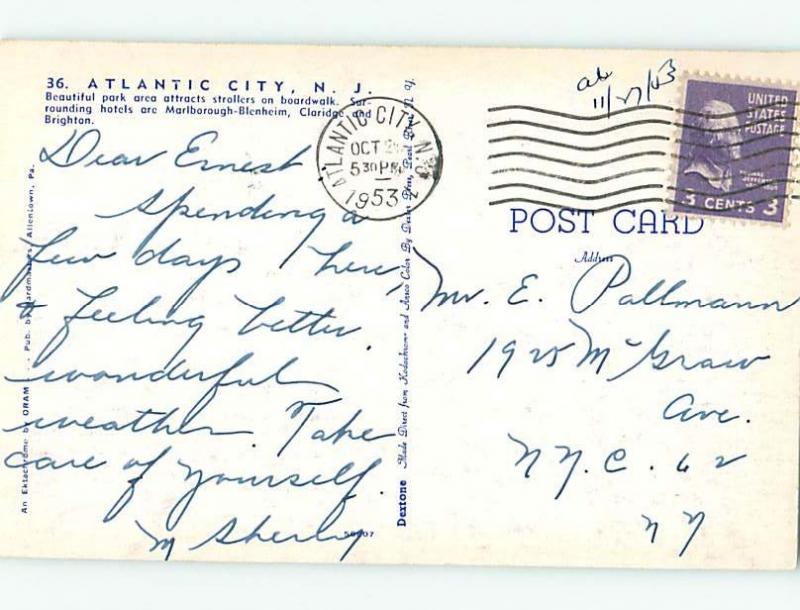 36. ATLANTIC CITY, N. J.
Beautiful park area attracts strollers on boardwalk. Sur-
rounding hotels are Marlborough-Blenheim, Claridge and
Brighton.
Dear Ernest
Spending a
few days here,
& feeling better.
wonderful
weather. Take
care of yourself.
M Sherby
ATLANTIC CITY, N.J.
OCT
5 30 PM
1953
11/27/53
UNITED
STATES
POSTAGE
3 CENTS 3
POST CARD
Address
Mr. E. Pallmann
1925 McGraw
Ave.
N.Y.C. 62
N Y
An Ektachrome by ORAM
Pub. by Boardmasters, Allentown, Pa.
Dextone Made Direct from Kodachrome and Ansco Color By Dexter Press, Pearl River, N. Y.